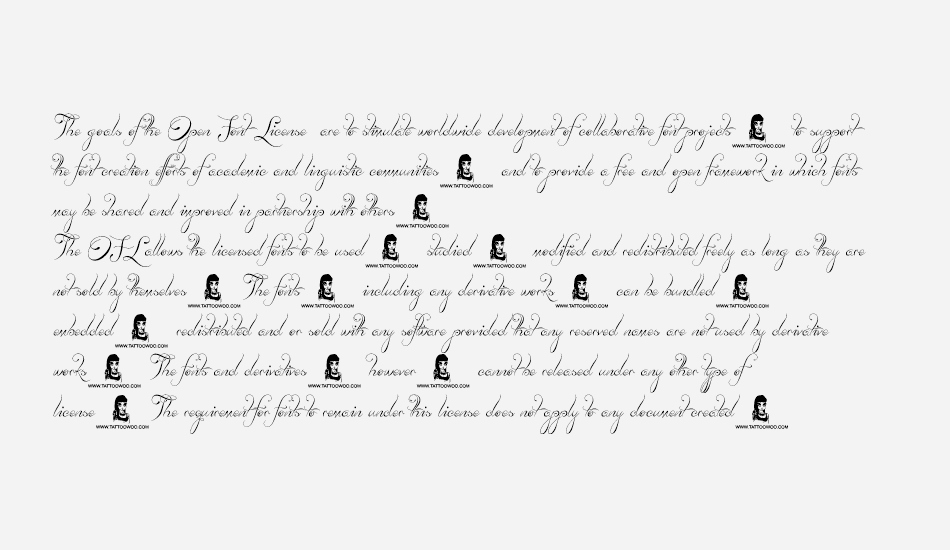 The goals of the Open Font License are to stimulate worldwide development of collaborative font projects WWW.TATTOOWOO.COM to support
the font creation efforts of academic and linguistic communities WWW.TATTOOWOO.COM and to provide a free and open framework in which fonts
may be shared and improved in partnership with others WWW.TATTOOWOO.COM
The OFL allows the licensed fonts to be used WWW.TATTOOWOO.COM studied WWW.TATTOOWOO.COM modified and redistributed freely as long as they are
not sold by themselves WWW.TATTOOWOO.COM The fonts WWW.TATTOOWOO.COM including any derivative works WWW.TATTOOWOO.COM can be bundled WWW.TATTOOWOO.COM
embedded WWW.TATTOOWOO.COM redistributed and or sold with any software provided that any reserved names are not used by derivative
works WWW.TATTOOWOO.COM The fonts and derivatives WWW.TATTOOWOO.COM however WWW.TATTOOWOO.COM cannot be released under any other type of
license WWW.TATTOOWOO.COM The requirement for fonts to remain under this license does not apply to any document created WWW.TATTOOWOO.COM